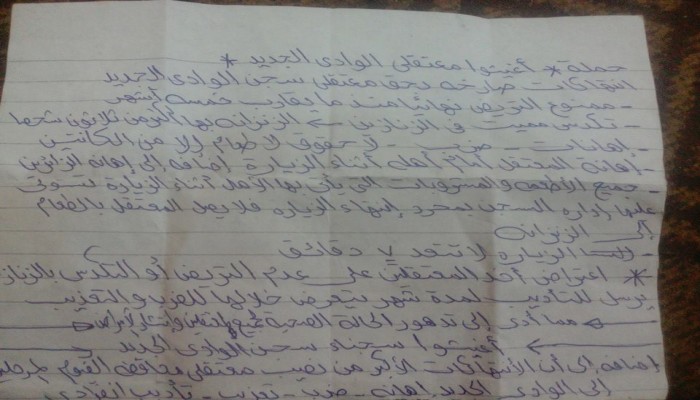 حملة * أغيثوا معتقلي الوادي الجديد *
انتهاكات صارخه بحق معتقلي سجن الوادي الجديد
- ممنوع التريض نهائيا منذ ما يقارب خمسة أشهر
- تكدس مميت في الزنازين ← الزنزانه بها أكثر من ثلاثون شخصا
- إهانات - ضرب - لا حقوق لا طعام إلا من الكانتين
- إهانة المعتقل أمام أهله أثناء الزيارة إضافه إلى إهانه الزائرين
- جميع الأطعمه والمشروبات التي يأتي بها الأهل أثناء الزيارة تستولى
عليها إداره السجن بمجرد إنتهاء الزياره فلا يصل المعتقل بالطعام
إلى الزنزانه
- الزياره لا تتعد ٧ دقائق
* اعتراض أحد المعتقلين على عدم التريض أو التكدس بالزنازين
يرسل للتأديب لمدة شهر يتعرض خلالها للضرب والتعذيب
مما أدى إلى تدهور الحالة الصحية وانتشار الأمراض
أغيثوا سجناء سجن الوادي الجديد
إضافه إلى أن الأنتهاكات الأكبر من نصيب معتقلي محافظه الفيوم
إلى الوادي الجديد إهانه - ضرب - تعذيب - تأديب انفرادي